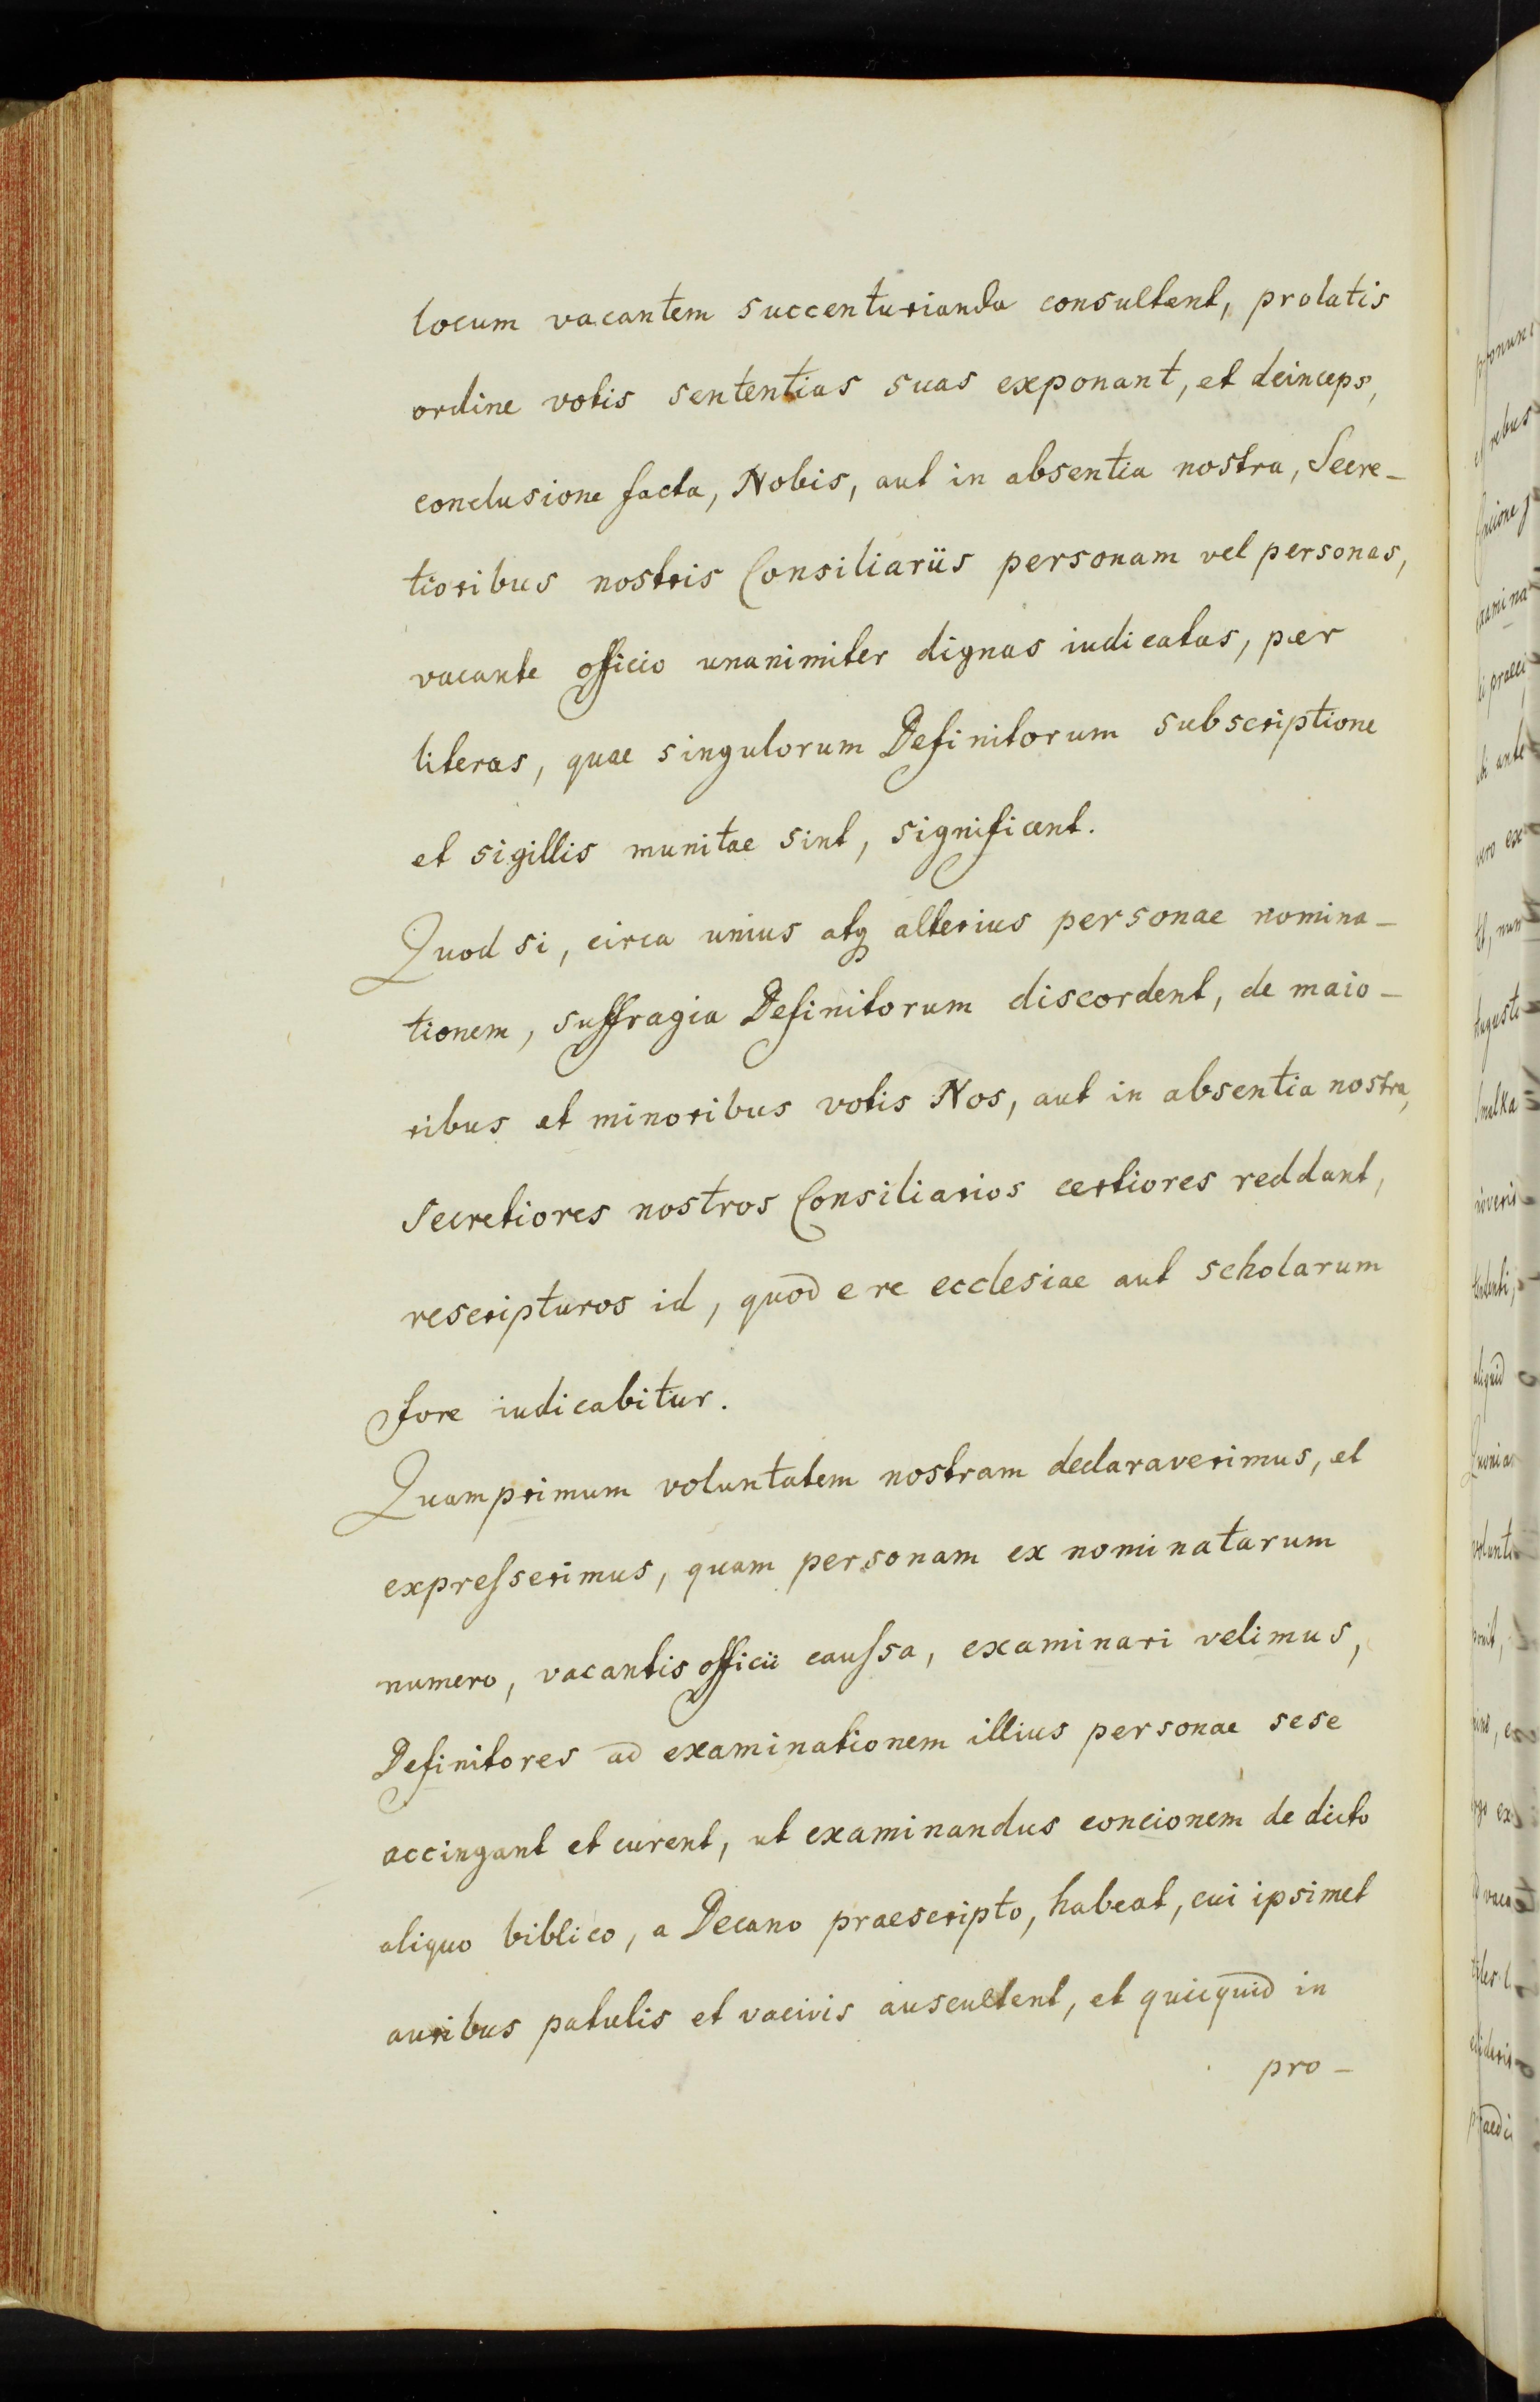 locum vacantem succenturianda consultent, prolatis
ordine votis sententias suas exponant, et deinceps,
conclusione facta, Nobis, aut in absentia nostra, Secre-
tioribus nostris Consiliariis personam vel personas,
vacante officio unanimiter dignas iudicatas, per
literas, quae singulorum Definitorum subscriptione
et sigillis munitae sint, significent.
Quod si, circa unius atq alterius personae nomina-
tionem, suffragia Definitorum discordent, de maio-
ribus et minoribus votis Nos, aut in absentia nostra,
Secretiores nostros Consiliarios certiores reddant,
rescripturos id, quod e re ecclesiae aut scholarum
fore iudicabitur.
Quamprimum voluntatem nostram declaraverimus, et
expresserimus, quam personam ex nominatarum
numero, vacantis officii caussa, examinari velimus,
Definitores ad examinationem illius personae sese
accingant et curent, ut examinandus concionem de dicto
aliquo biblico, a Decano praescripto, habeat, cui ipsimet
auribus patulis et vacivis auscultent, et quicquid in
pro-